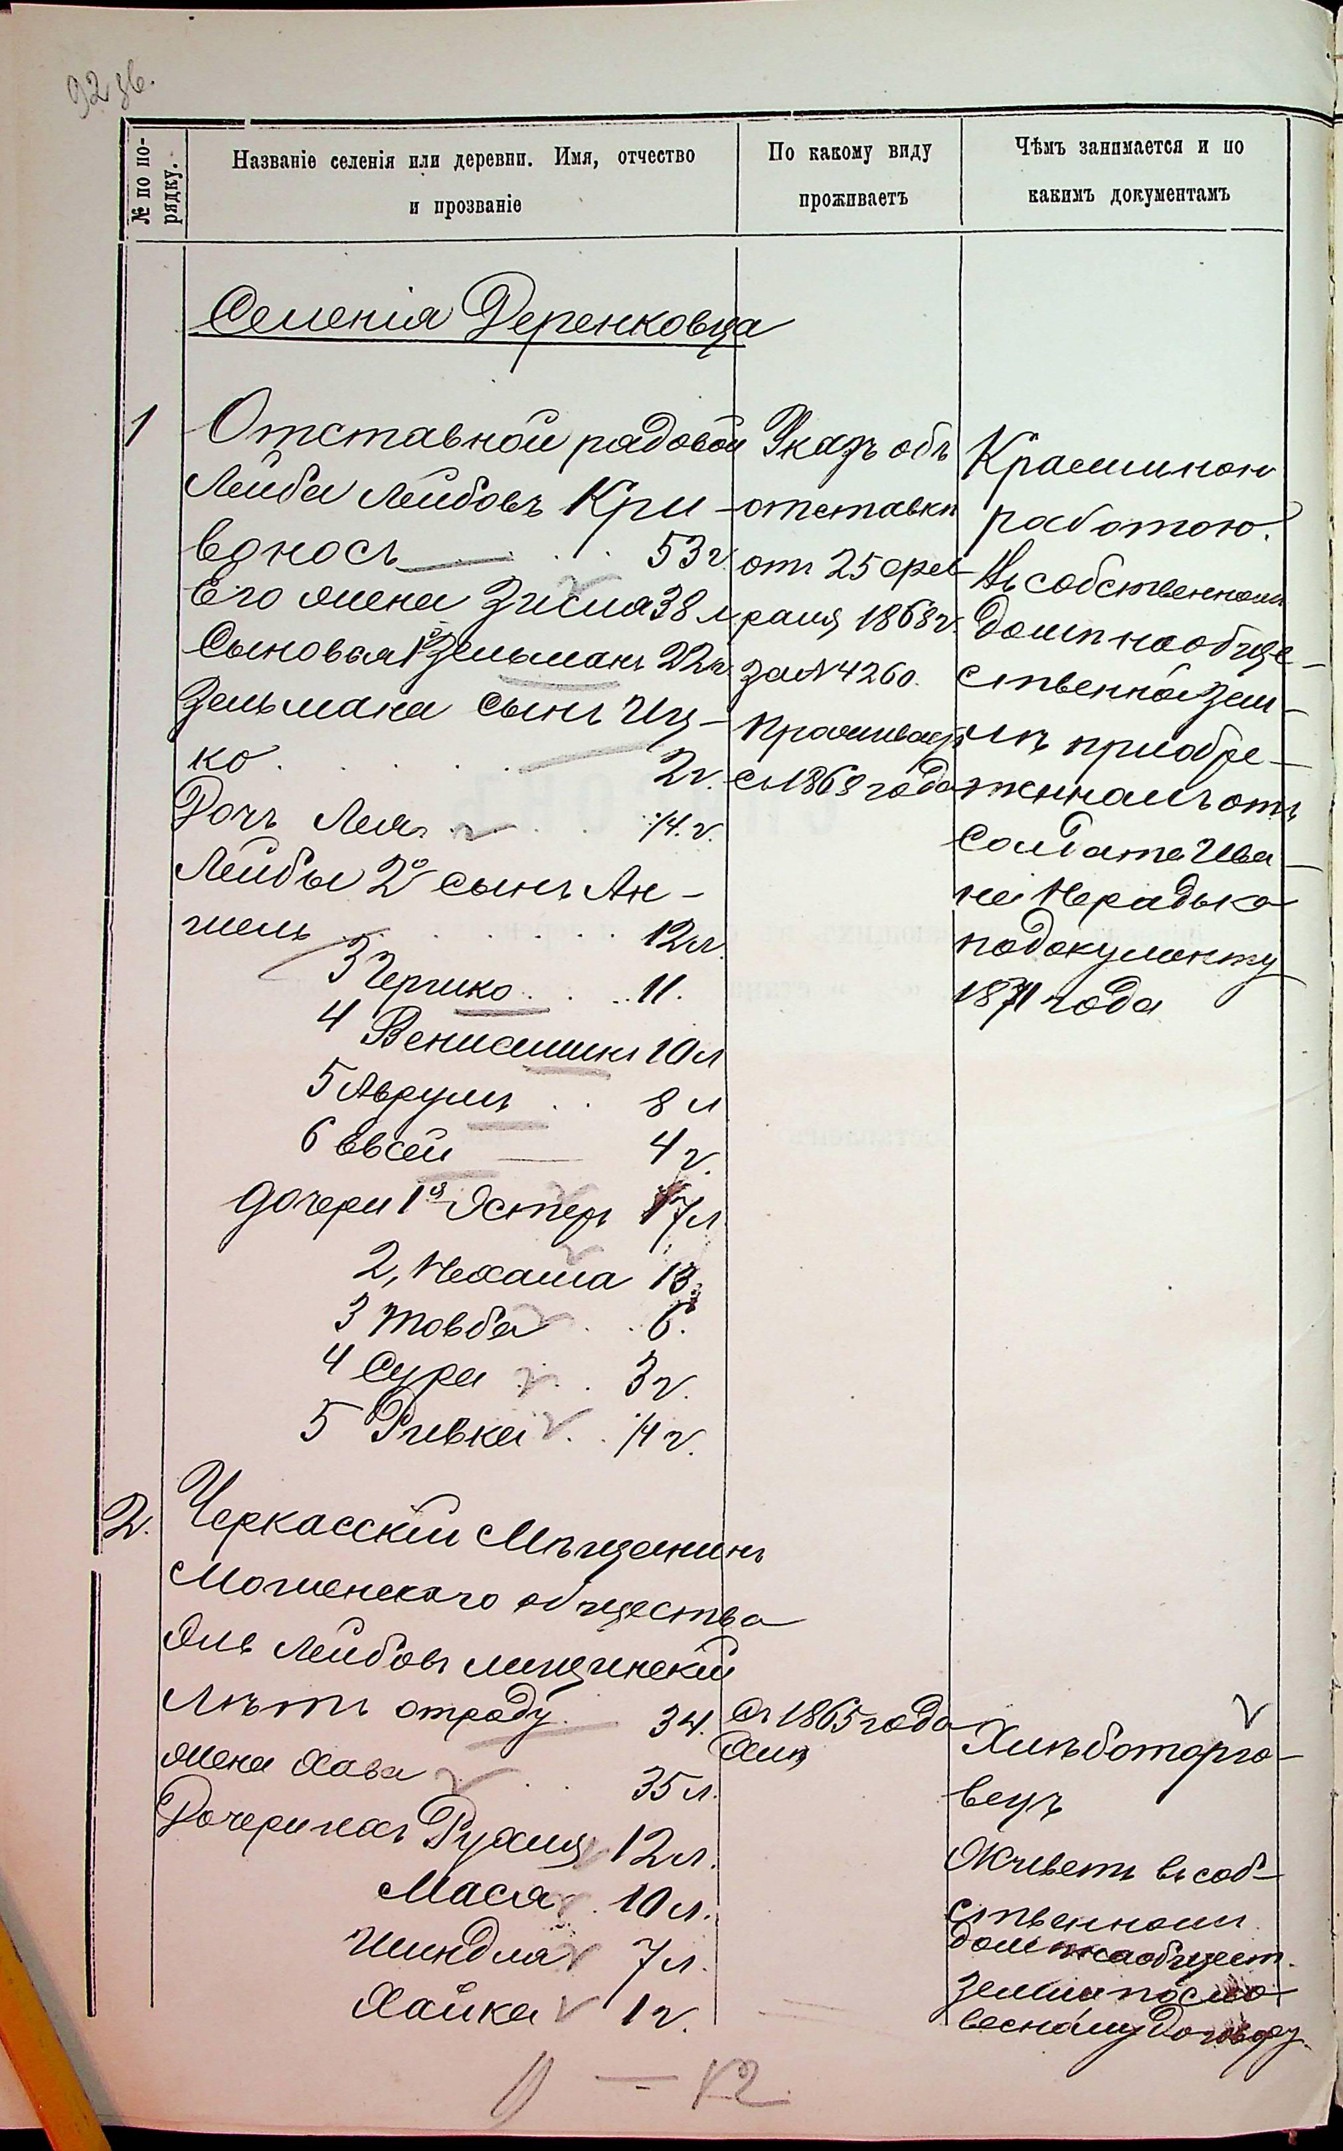 92 зв.
№ по по-
рядку.
Названіе селенія или деревни. Имя, отчество
и прозваніе
По какому виду
проживаетъ
Чѣмъ занимается и по
какимъ документамъ
Селенія Деренковца
1
Отставной рядовой
Лейба Лейбовъ Кри-
воносъ 53 г.
Его жена Зисля 38 л
Сыновья 1й Зельманъ 22 г.
Зельмана сынъ Иц-
ко 2 г.
Дочь Лея 1/4 г.
Лейбы 2й сынъ Ан-
шель 12 л.
3 Гершко 11.
4 Веніаминъ 10 л
5 Аврумъ 8 л
6 Евсей 4 г.
дочери 1я Эстеръ 17 л
2, Нехама 13
3 Товба 6.
4 Сура 3 г.
5 Ривка 1/4 г.
Указъ объ
отставки
отъ 25 фев-
раля 1868 г.
за № 4260.
Проживаетъ
съ 1868 года
Красильною
работою.
Въ собственномъ
домѣ на обще-
ственной зем-
лѣ приобре-
тенномъ отъ
солдата Ива-
на
по документу
1871 года
2.
Черкасскій Мѣщанинъ
Мошенскаго общества
Эль Лейбовъ Лищинскій
лѣтъ отроду 34.
жена Хава 35 л.
Дочери ихъ Рухля 12 л.
Мася 10 л.
Шиндля 7 л.
Хайка 1 г.
Съ 1865 года
Хлѣботорго-
вецъ
Живетъ въ соб-
ственномъ
домѣ на общест.
земли по сло-
весному договору.
9 — 12